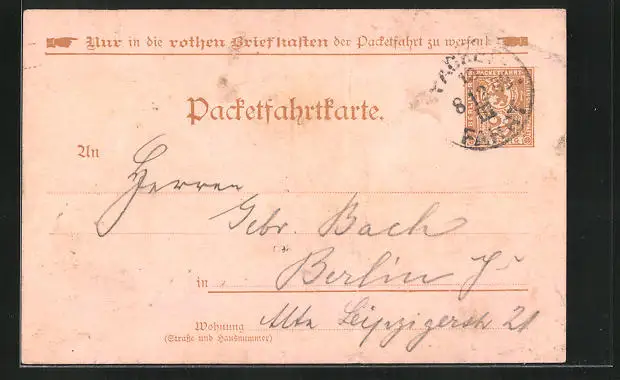 Nur in die rothen Briefkasten der Packetfahrt zu werfen!
PACKETFAHRT
Packetfahrtkarte.
An
Herren
Gebr. Bach
in Berlin
Wohnung Alte Leipzigerstr 21
(Straße und Hausnummer)